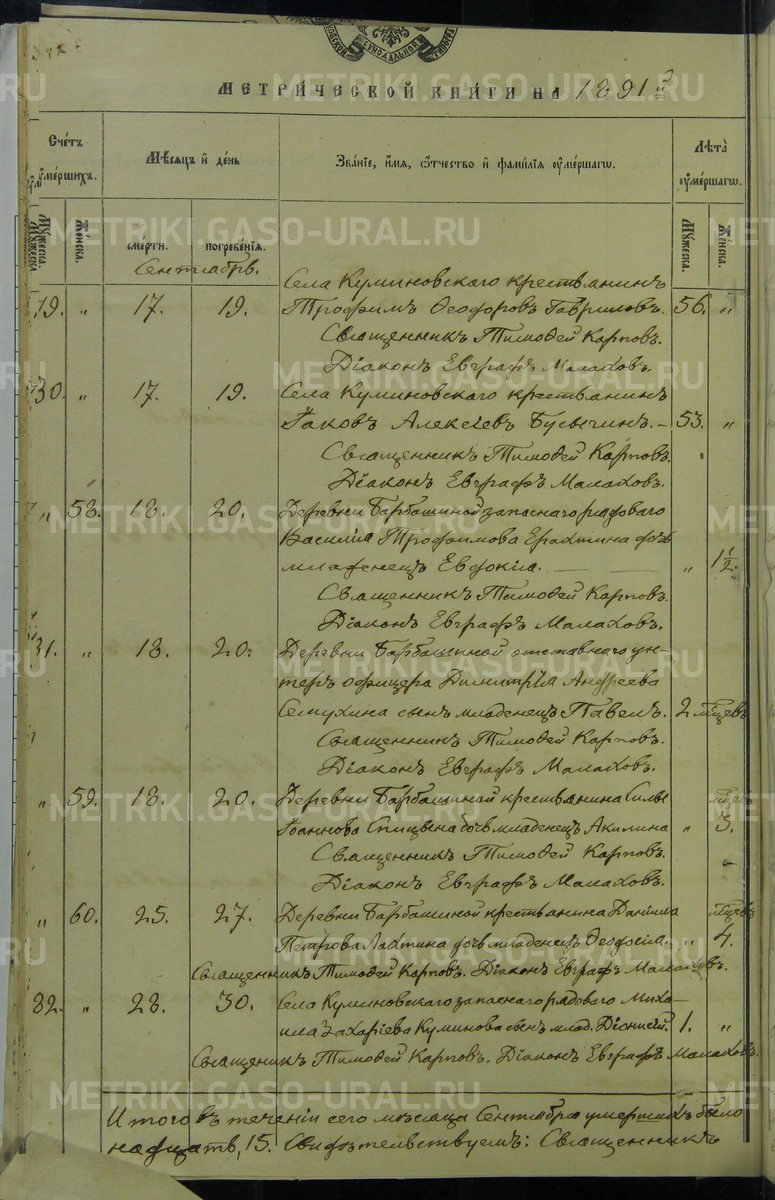 МЕТРИ́ЧЕСКОЙ КНИ́ГИ НА 1891 й
Счетъ ᲂу҆ме́ршихъ.
Мѣ́сѧцъ и҆ де́нь
Зва́нїе, и҆́мѧ, ѻ҆́тчество и҆ фами́лїѧ ᲂу҆ме́ршагѡ.
Лѣта̀ ᲂу҆ме́ршагѡ
Мꙋ́жеска.
Же́нска.
сме́рти.
погребе́нїѧ.
Мꙋ́жеска.
Же́нска.
Сентябрь.
Села Куминовскаго крестьянинъ
79. " 17. 19. Трофимъ Ѳеодоровъ Гавриловъ. 56. "
Священникъ Тимоѳей Карповъ.
Діаконъ Евграфъ Малаховъ.
30. " 17. 19. Села Куминовскаго крестьянинъ
Іаковъ Алексіевъ Бусыгинъ. – 53. "
Священникъ Тимоѳей Карповъ.
Діаконъ Евграфъ Малаховъ.
" 58. 18. 20. Деревни Барбашиной запаснаго рядоваго
Василія Трофимова Ерахтина дочь
младенецъ Евдокія. " 1 1/2.
Священникъ Тимоѳей Карповъ.
Діаконъ Евграфъ Малаховъ.
31. " 18. 20. Деревни Барбашиной отставнаго ун-
теръ офицера Димитрія Андреева
Семухина сынъ младенецъ Павелъ. 2 мѣсцевъ
Священникъ Тимоѳей Карповъ.
Діаконъ Евграфъ Малаховъ.
" 59. 18. 20. Деревни Барбашиной крестьянина Силы
Іоаннова Спицына дочь младенецъ Акилина " 3.
Священникъ Тимоѳей Карповъ.
Діаконъ Евграфъ Малаховъ.
" 60. 25. 27. Деревни Барбашиной крестьянина Даніила мѣсцевъ
Петрова Лахтина дочь младенецъ Ѳеодосія. " 4.
Священникъ Тимоѳей Карповъ. Діаконъ Евграфъ Малаховъ.
32. " 28. 30. Села Куминовскаго запаснаго рядоваго Миха-
ила Захаріева Куминова сынъ млад. Діонисій. 1. "
Священикъ Тимоѳей Карповъ. Діаконъ Евграфъ Малаховъ.
Итого въ теченіи сего мѣсяца Сентября умершихъ было
надцать, 15. Свидѣтельствуемъ: Священникъ
METRIKI.GASO-URAL.RU